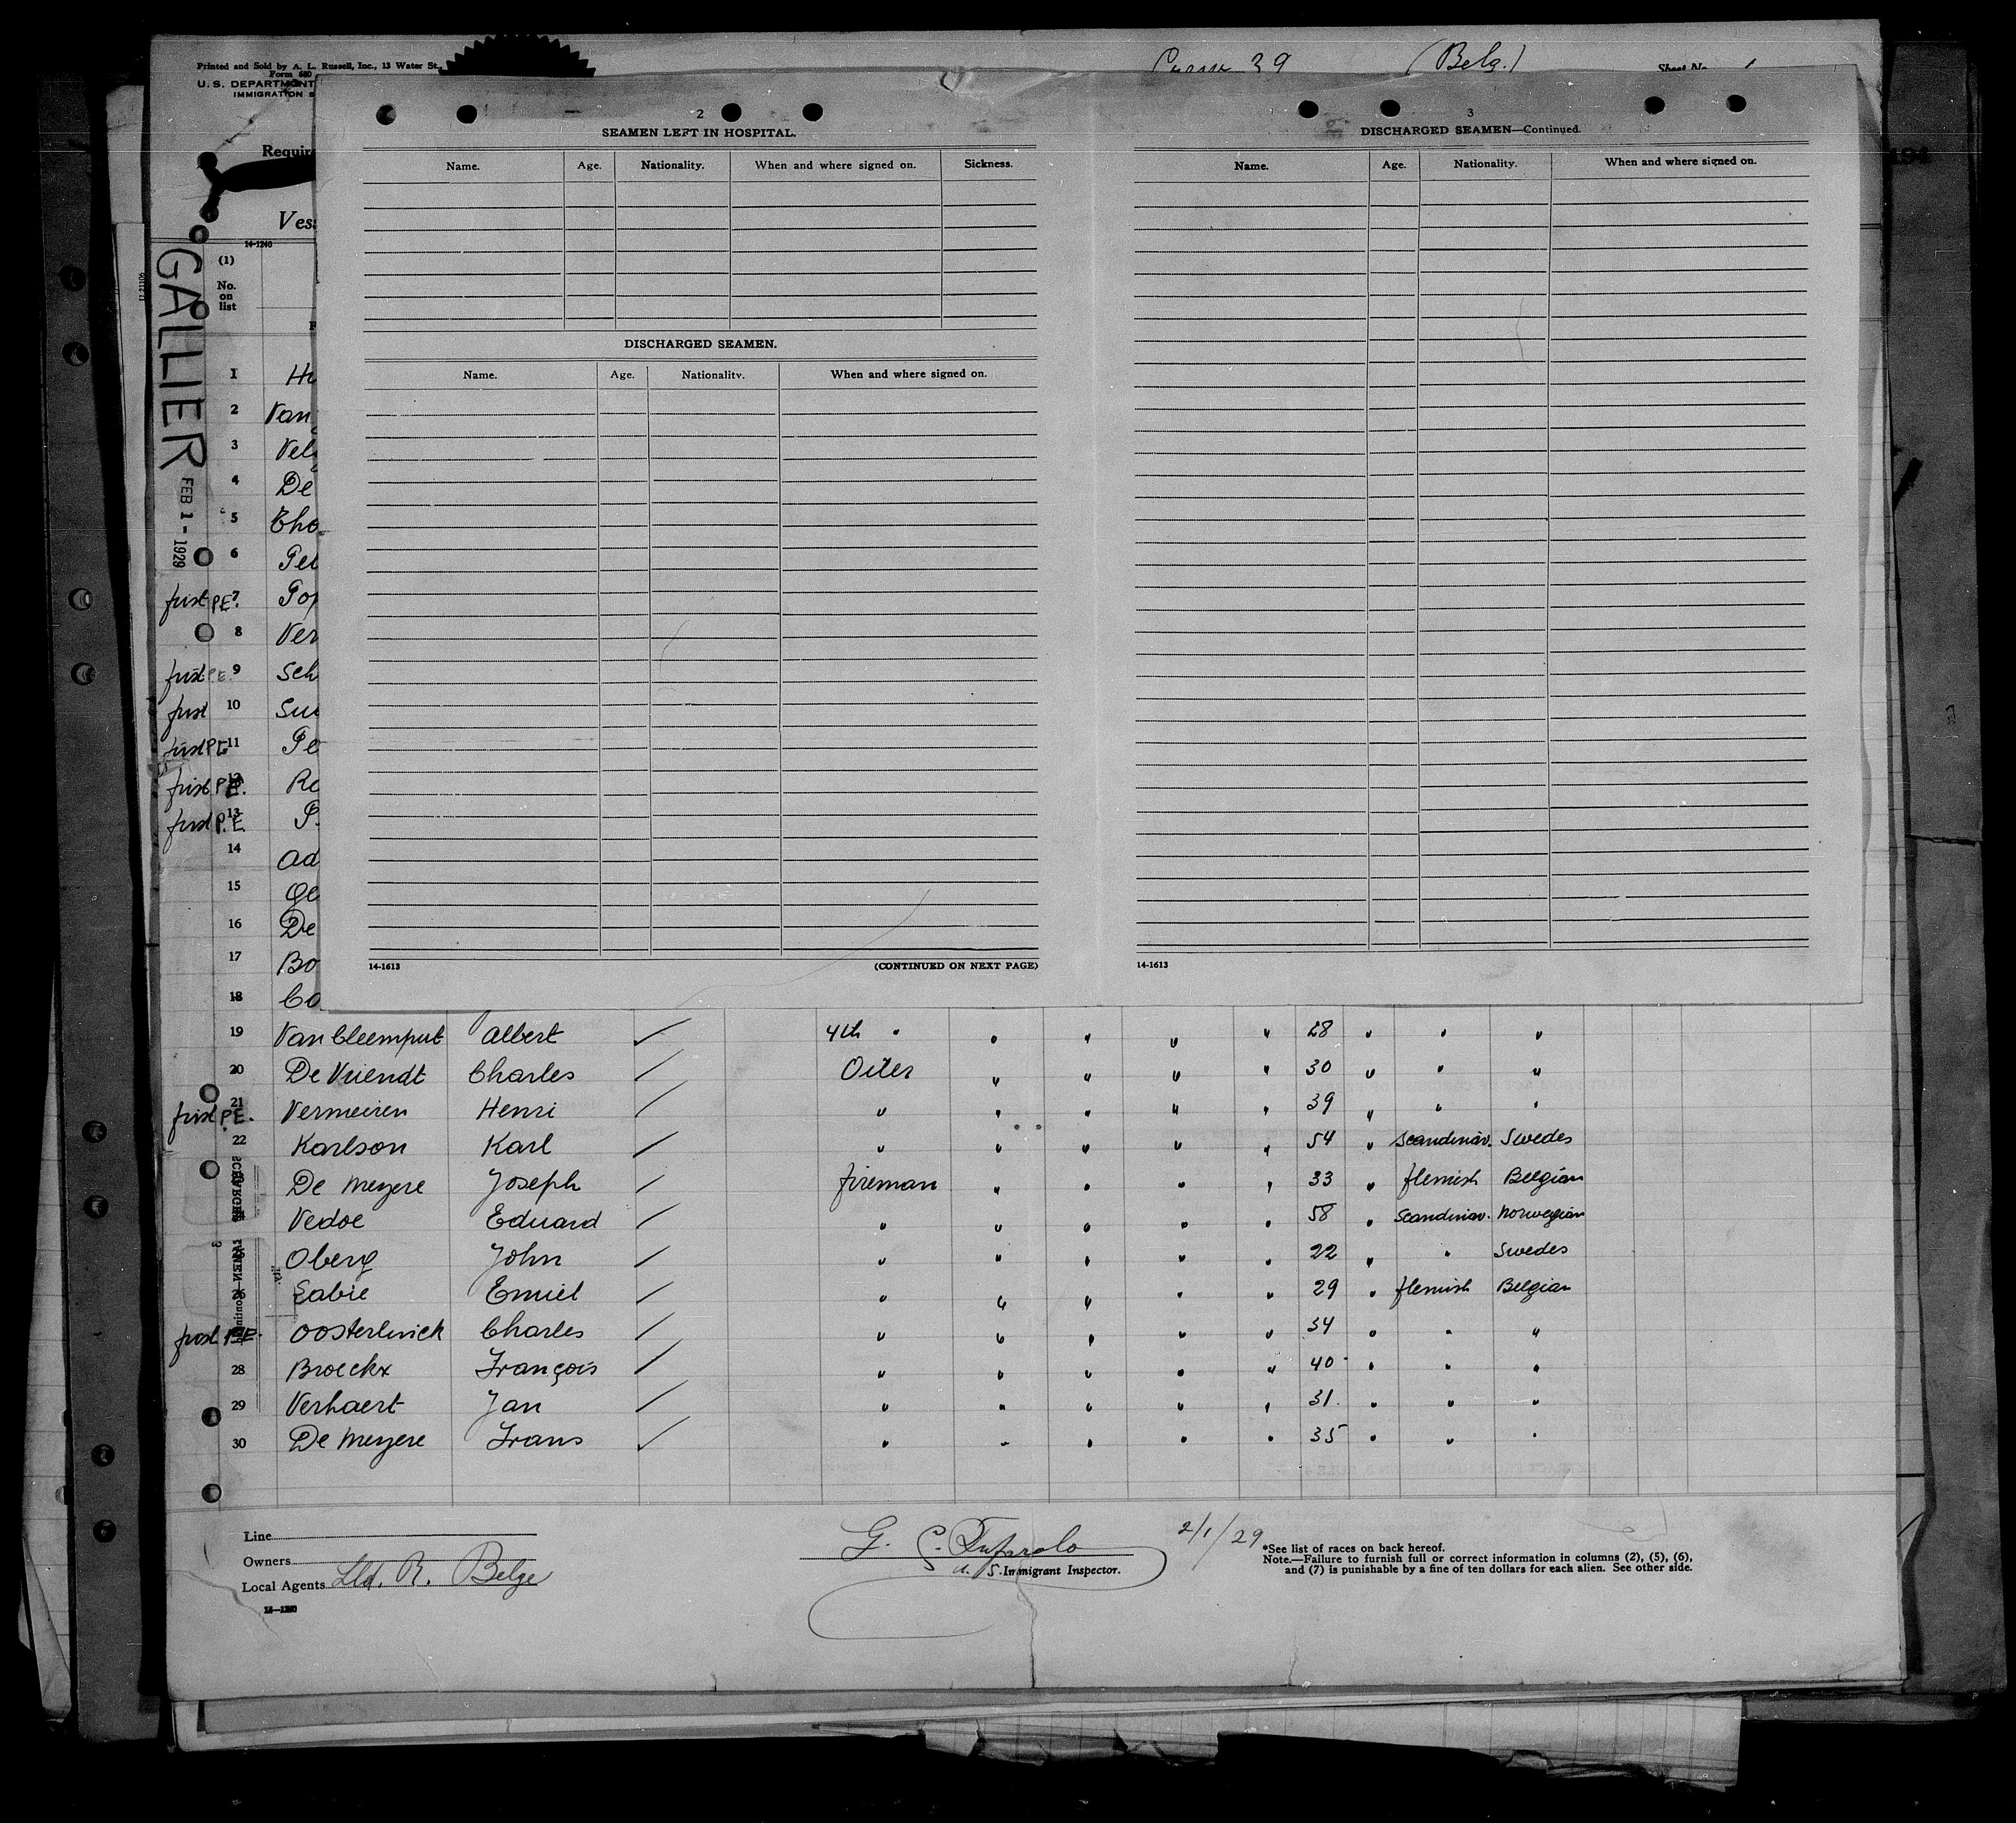 Printed and Sold by A. L. Russell, Inc., 13 Water St.,
Form 680
U. S. DEPARTMENT
IMMIGRATION S
(Belg.)
39
Requir
Ves
14-1240
(1)
No.
on
list
GALLIER
FEB 1 - 1929
2
SEAMEN LEFT IN HOSPITAL.
Name. Age. Nationality. When and where signed on. Sickness.
DISCHARGED SEAMEN.
Name. Age. Nationality. When and where signed on.
14-1613 (CONTINUED ON NEXT PAGE)
3
DISCHARGED SEAMEN—Continued.
Name. Age. Nationality. When and where signed on.
14-1613
1 Hu
2 Van
3 Vel
4 De
5 Tho
6 Pet
first P.E. 7 Pop
8 Ver
first P.E. 9 Sch
first 10 Sui
first P.E. 11 Pe
first P.E. 12 Ro
first P.E. 13 P.
14 Ad
15 Ge
16 De
17 Bo
18 Co
19 Van Cleemput Albert 4th " " " " " 28 " " "
20 De Vriendt Charles Oiler " " " " 30 " " "
first P.E. 21 Vermeiren Henri " " " " " 39 " " "
22 Karlson Karl " " " " " 54 " Scandinav. Swedes
De Meyere Joseph fireman " " " " 33 " flemish Belgian
Vedoe Eduard " " " " " 58 " Scandinav. Norwegian
Oberg John " " " " " 22 " " Swedes
26 Labie Emiel " " " " " 29 " flemish Belgian
first P.E. Oosterlinck Charles " " " " " 34 " " "
28 Broeckx François " " " " " 40 " " "
29 Verhaert Jan " " " " " 31 " " "
30 De Meyere Frans " " " " " 35 " " "
Line
Owners
Local Agents Lld. R. Belge
14-1240
G.
U. S. Immigrant Inspector.
2/1/29
*See list of races on back hereof.
Note.—Failure to furnish full or correct information in columns (2), (5), (6),
and (7) is punishable by a fine of ten dollars for each alien. See other side.